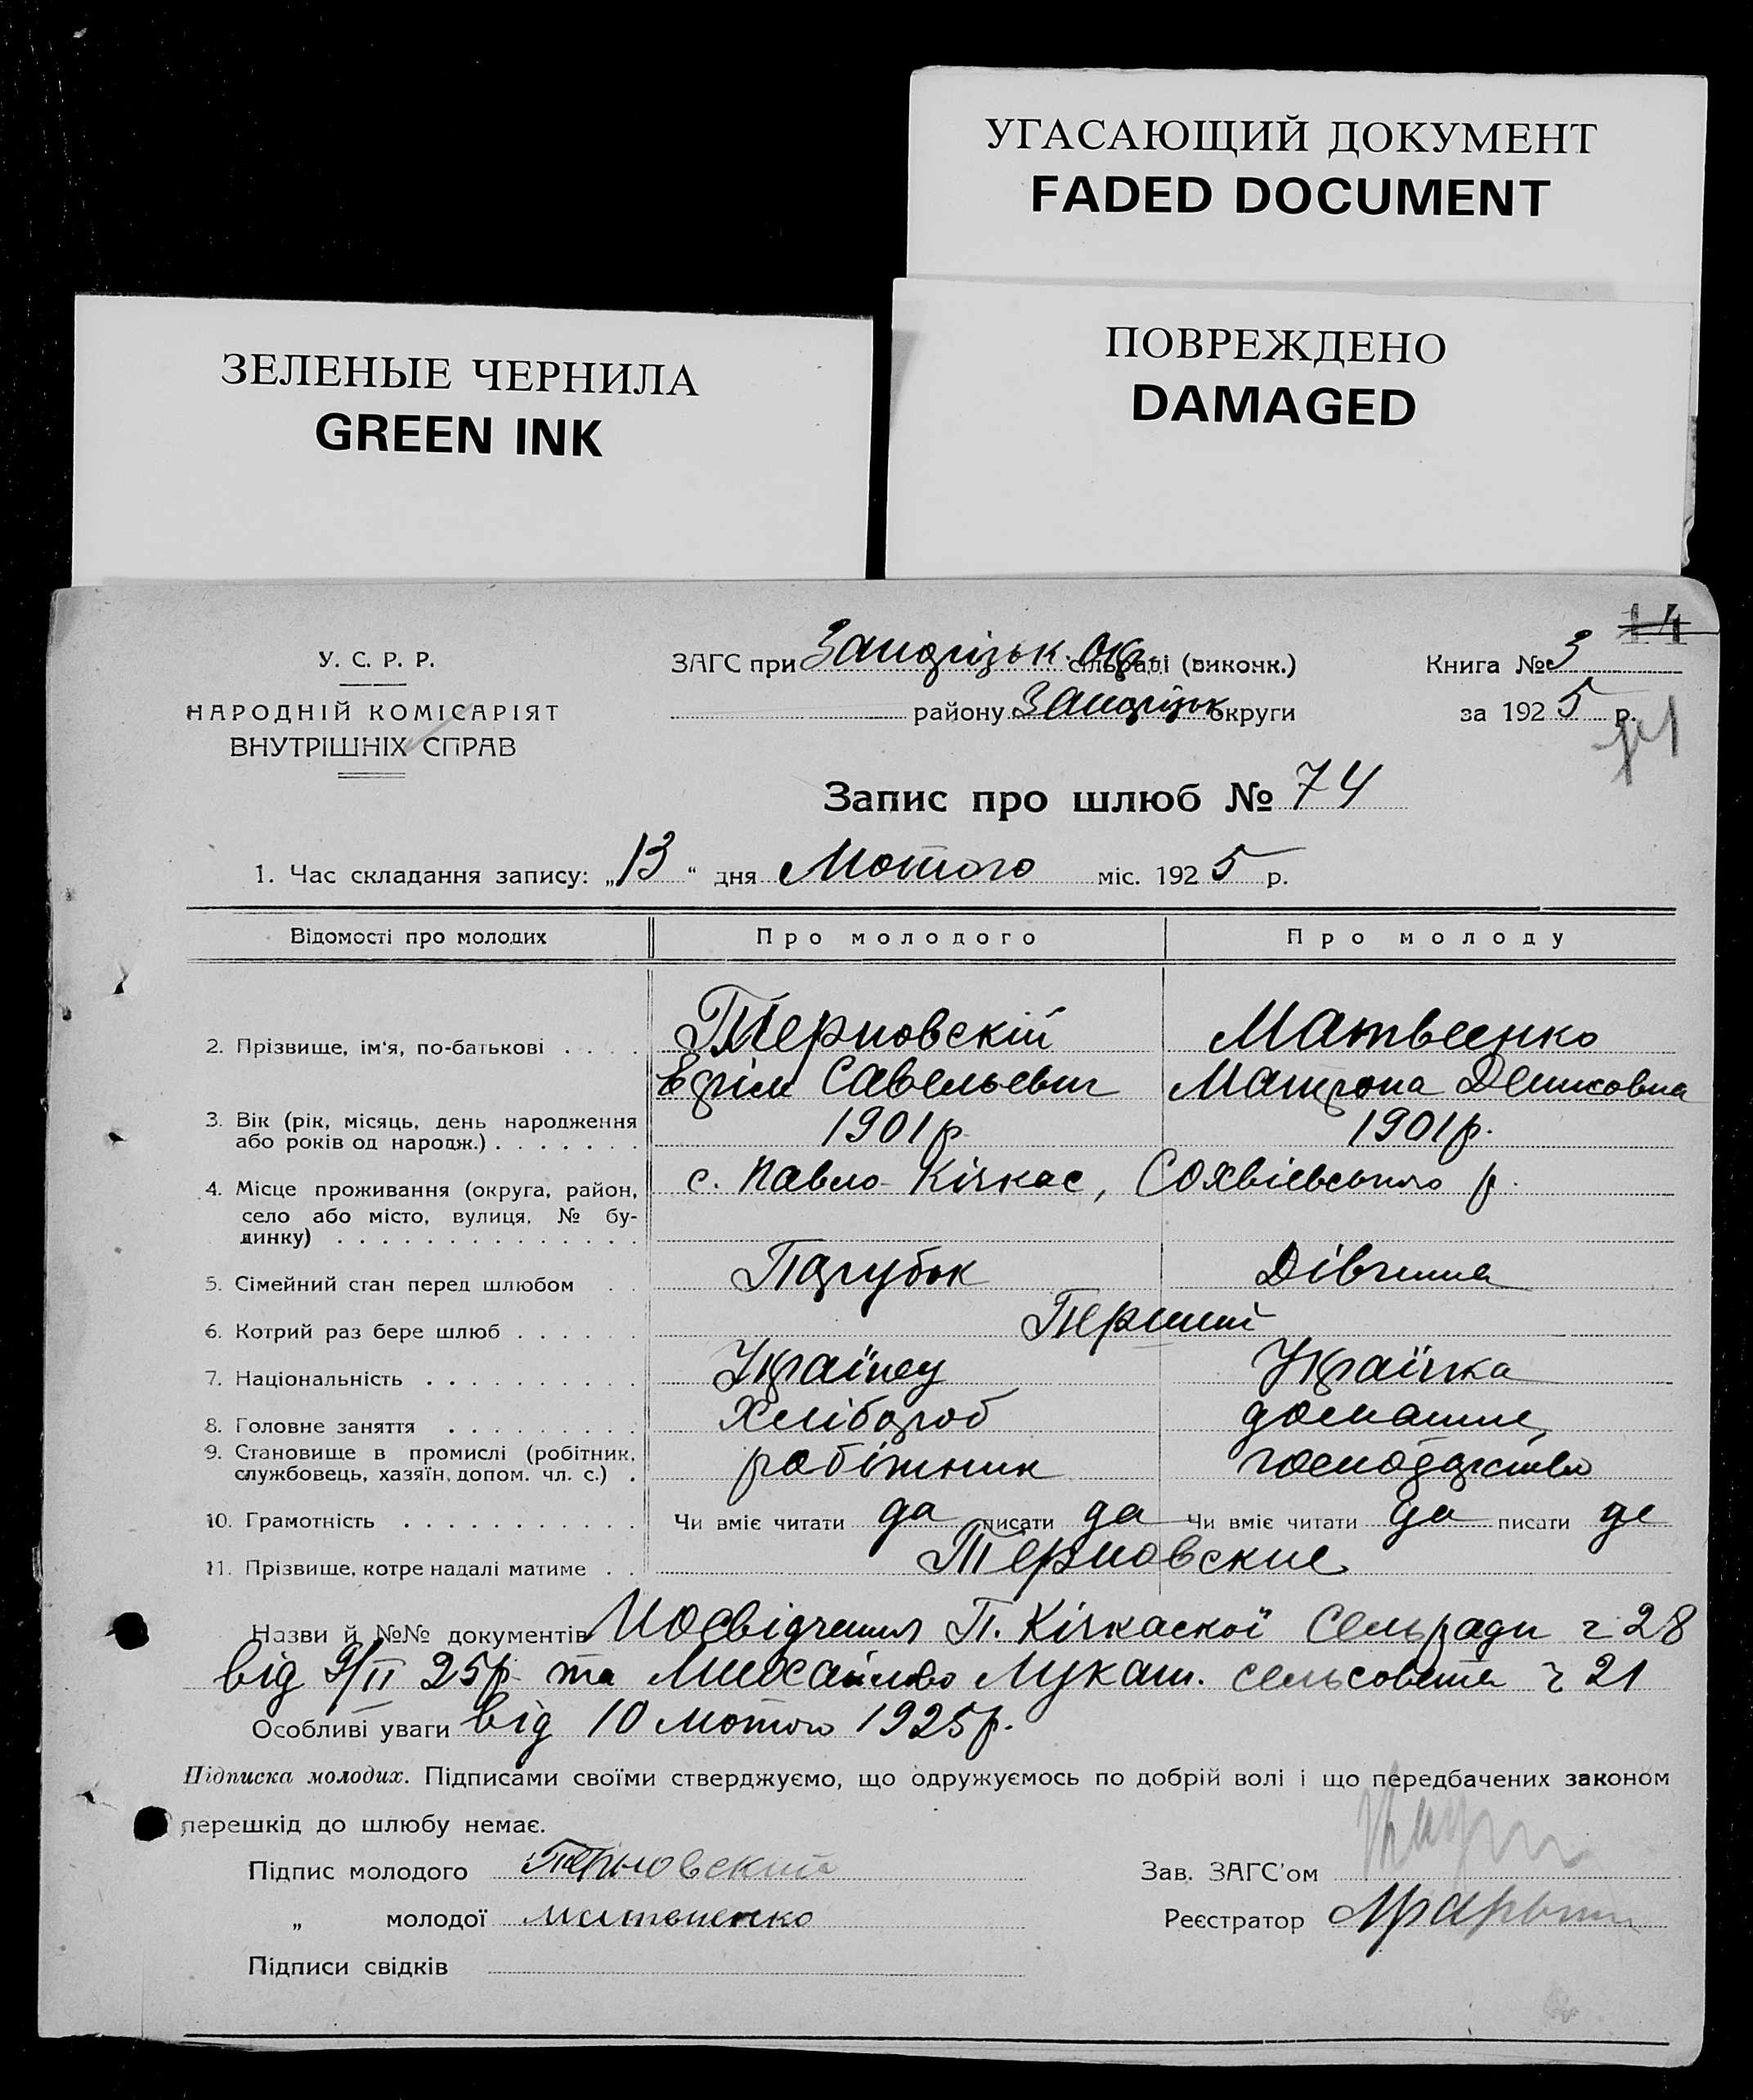 УГАСАЮЩИЙ ДОКУМЕНТ
FADED DOCUMENT
ЗЕЛЕНЫЕ ЧЕРНИЛА
GREEN INK
ПОВРЕЖДЕНО
DAMAGED
14
У. С. Р. Р.
НАРОДНІЙ КОМІСАРІЯТ
ВНУТРІШНІХ СПРАВ
ЗАГС при Запоріжськ. Окр. сільраді (виконк.)
району Запоріжськ округи
Книга № 3
за 1925 р.
Запис про шлюб № 74
1. Час складання запису: „13“ дня Лютого міс. 1925 р.
Відомості про молодих Про молодого Про молоду
2. Прізвище, ім'я, по-батькові . . . . Терновскій Матвеенко
Єфрім Савельевич Матрона Денисовна
3. Вік (рік, місяць, день народження
або років од народж.) . . . . . . . 1901 р. 1901 р.
4. Місце проживання (округа, район,
село або місто, вулиця, № бу-
динку) . . . . . . . . . . . . . . с. Павло-Кічкас, Софієвського р.
5. Сімейний стан перед шлюбом . . Парубок Дівчина
6. Котрий раз бере шлюб . . . . . . Перший
7. Національність . . . . . . . . . . Українец Українка
8. Головне заняття . . . . . . . . . Хлібороб домашнє
9. Становище в промислі (робітник,
службовець, хазяїн, допом. чл. с.) . робітник господарство
10. Грамотність . . . . . . . . . . . Чи вміє читати да писати да Чи вміє читати да писати да
11. Прізвище, котре надалі матиме . . Терновские
Назви й №№ документів Посвідчення П. Кічкаскої Сельради ч 28
від 9/II 25 р. та Михайлово Лукаш. сельсовета ч 21
Особливі уваги від 10 лютого 1925 р.
Підписка молодих. Підписами своїми стверджуємо, що одружуємось по добрій волі і що передбачених законом
перешкід до шлюбу немає.
Підпис молодого Терновский
Зав. ЗАГС'ом
„ молодої Матвиенко
Реєстратор
Підписи свідків